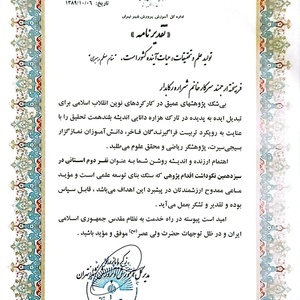 تاریخ: ۱۳۸۹/۱۰/۰۹
اداره کل آموزش و پرورش شهر تهران
«تقدیرنامه»
تولید علم و تحقیقات، حیات آینده کشور است.
بی‌شک پژوهشهای عمیق در کارکردهای نوین انقلاب اسلامی برای
تبدیل ایده به پدیده در تارک هزاره دانایی اندیشه بلندهمتان را با
عنایت به رویکرد تربیت فراگیرندگان فاخر، دانش‌آموزان نمازگزار
بسیجی‌سیرت، پژوهشگر ریاضی و محقق علوم می‌طلبد.
اهتمام ارزنده و اندیشه روشن شما به عنوان نفر دوم استانی در
سیزدهمین نکوداشت اقدام پژوهی که سنگ بنای توسعه علمی است و مؤید
مساعی ممدوح ارزشمندتان در پیشبرد این اهداف می‌باشد، قابل سپاس
بوده و تقدیر و تشکر بعمل می‌آید.
امید است پیوسته در راه خدمت به نظام مقدس جمهوری اسلامی
ایران و در ظل توجهات حضرت ولی عصر (عج) موفق و مؤید باشید.